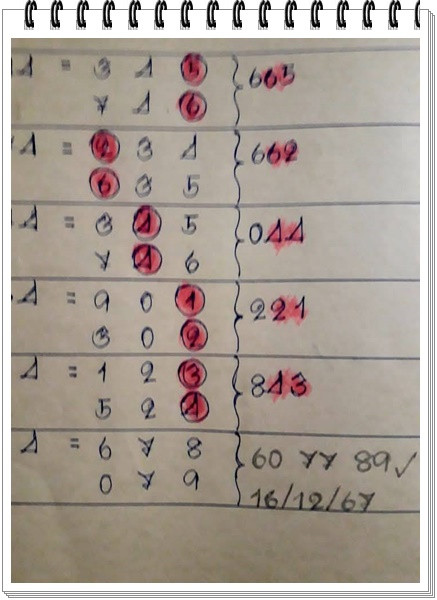 1 = 3 1 5 } 665
7 1 6
1 = 2 3 1 } 662
6 3 5
1 = 3 1 5 } 011
7 1 6
1 = 9 0 1 } 221
3 0 2
1 = 1 2 3 } 813
5 2 1
1 = 6 7 8 } 60 77 89✓
0 7 9 16/12/67